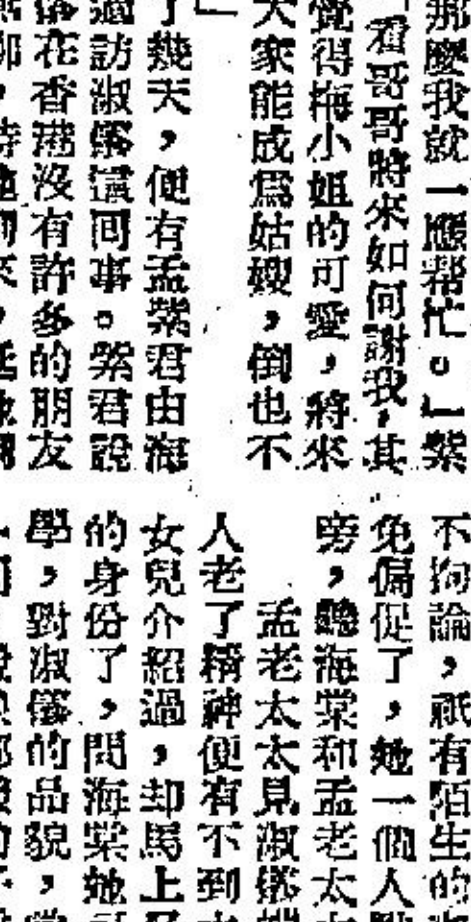 那麼我就一應帮忙。」紫
「看哥哥將來如何謝我,其
覺得梅小姐的可愛,將來
大家能成爲姑嫂,倒也不
」
了幾天,便有孟紫君由海
過訪淑儀這囘事。紫君說
儀在香港沒有許多的朋友
不拘論,祇有陌生的
免偏促了,她一個人
旁,聽海棠和孟老太
孟老太太見淑儀
人老了精神便有不到
女兒介紹過,却馬上
的身份了,問海棠她
學,對淑儀的品貌,